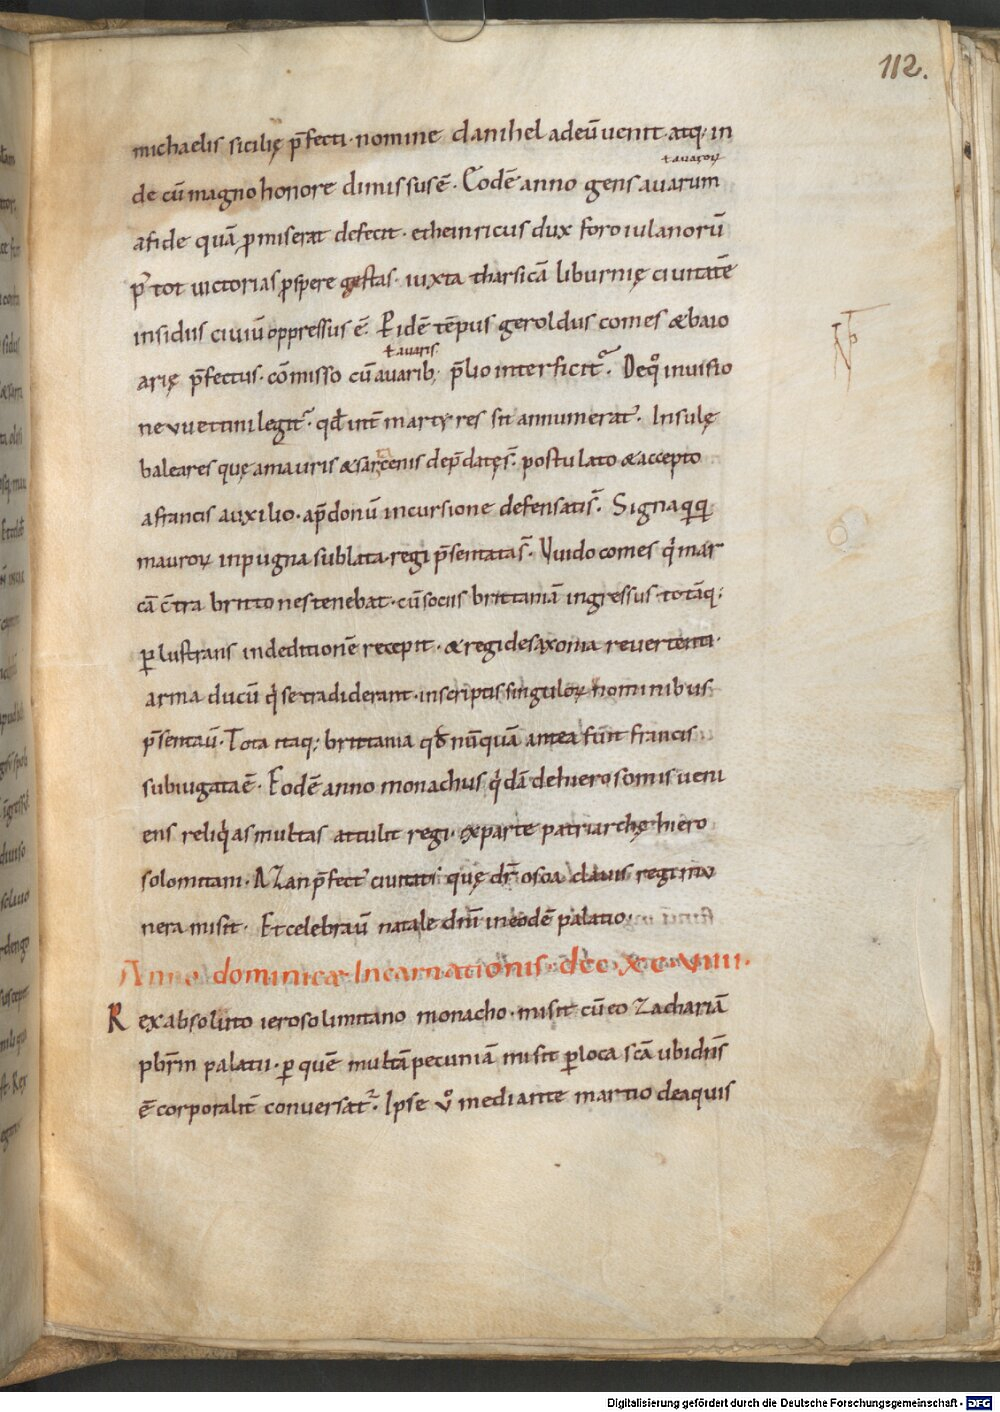 112.
michaelis sicilię p̄fecti · nomine danihel ad eū uenit · atq; in
ł auaroꝝ
de cū magno honore dimissus ē. Eodē anno gens auarum
a fide quā ꝓmiserat defecit · et heinricus dux foro iulanorū
p̄ tot uictorias ꝓspere gestas · iuxta tharsicā liburnię ciuitatē
insidiis ciuiū oppressus ē. Eidē tēpus geroldus comes & baio
ł auaris
arię p̄fectus · cōmisso cū auarib; p̄lio interficit᷑. De qͦ in uisio
ne uuettini legit᷑ · qđ int̄ martyres sit annumerat᷑. Insulę
NB
baleares quę a mauris & sarcenis dep̄datę s̄t · postulato & accepto
ra
a francis auxilio · ap̄donū incursione defensatę s̄t. Signa qͥqͥ
mauroꝝ in pugna sublata · regi p̄sentata s̄t. Uuido comes qͥ mar
cā c̄tra brittones tenebat · cū sociis brittaniā ingressus · totāq;
ꝑlustrans in deditionē recepit · & regi de saxonia reuertenti ·
arma ducū qͥ se tradiderant · inscriptis singuloꝝ nominibus
p̄sentauit̄ · Tota itaq; brittania qđ nūquā antea fuit̄ francis
subiugata ē. Eodē anno monachus qͥdā de hierosomis ueni
ens reliqͥas multas attulit regi · ex parte patriarchę hiero
solomitani. Azan p̄fect᷑ ciuitatis quę dr̄ osca claues regi mu
nera misit. Et celebrauit̄ natale dn̄i in eodē palatio.
Anno dominicæ Incarnationis · dcc xc viiii.
Rex absoluto ierosolimitano monacho · misit cū eo zachariā
pbr̄m palatii · ꝑ quē multā pecuniā misit ꝑ loca scā ubi dn̄s
ē corporalit̄ conuersat᷑. Ipse ůͦ mediante martio de aquis
Digitalisierung gefördert durch die Deutsche Forschungsgemeinschaft - DFG